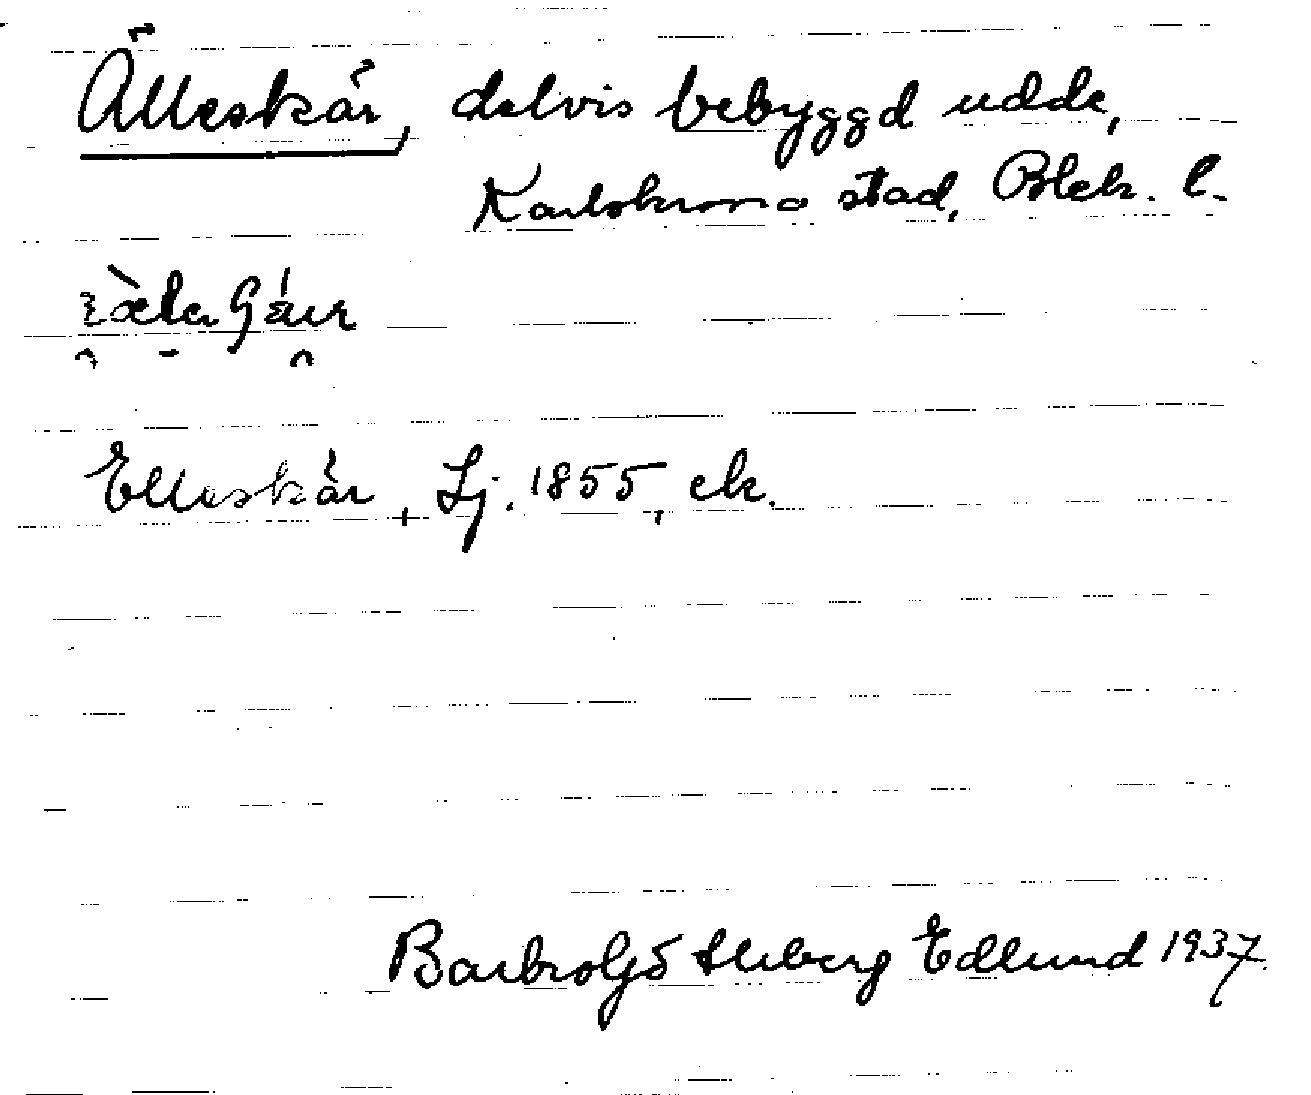 Älleskär, delvis bebyggd udde,
Karlskrona stad, Blek. l.
Elleskär, Lj. 1855, ek.
Barbro Edlund 1937.